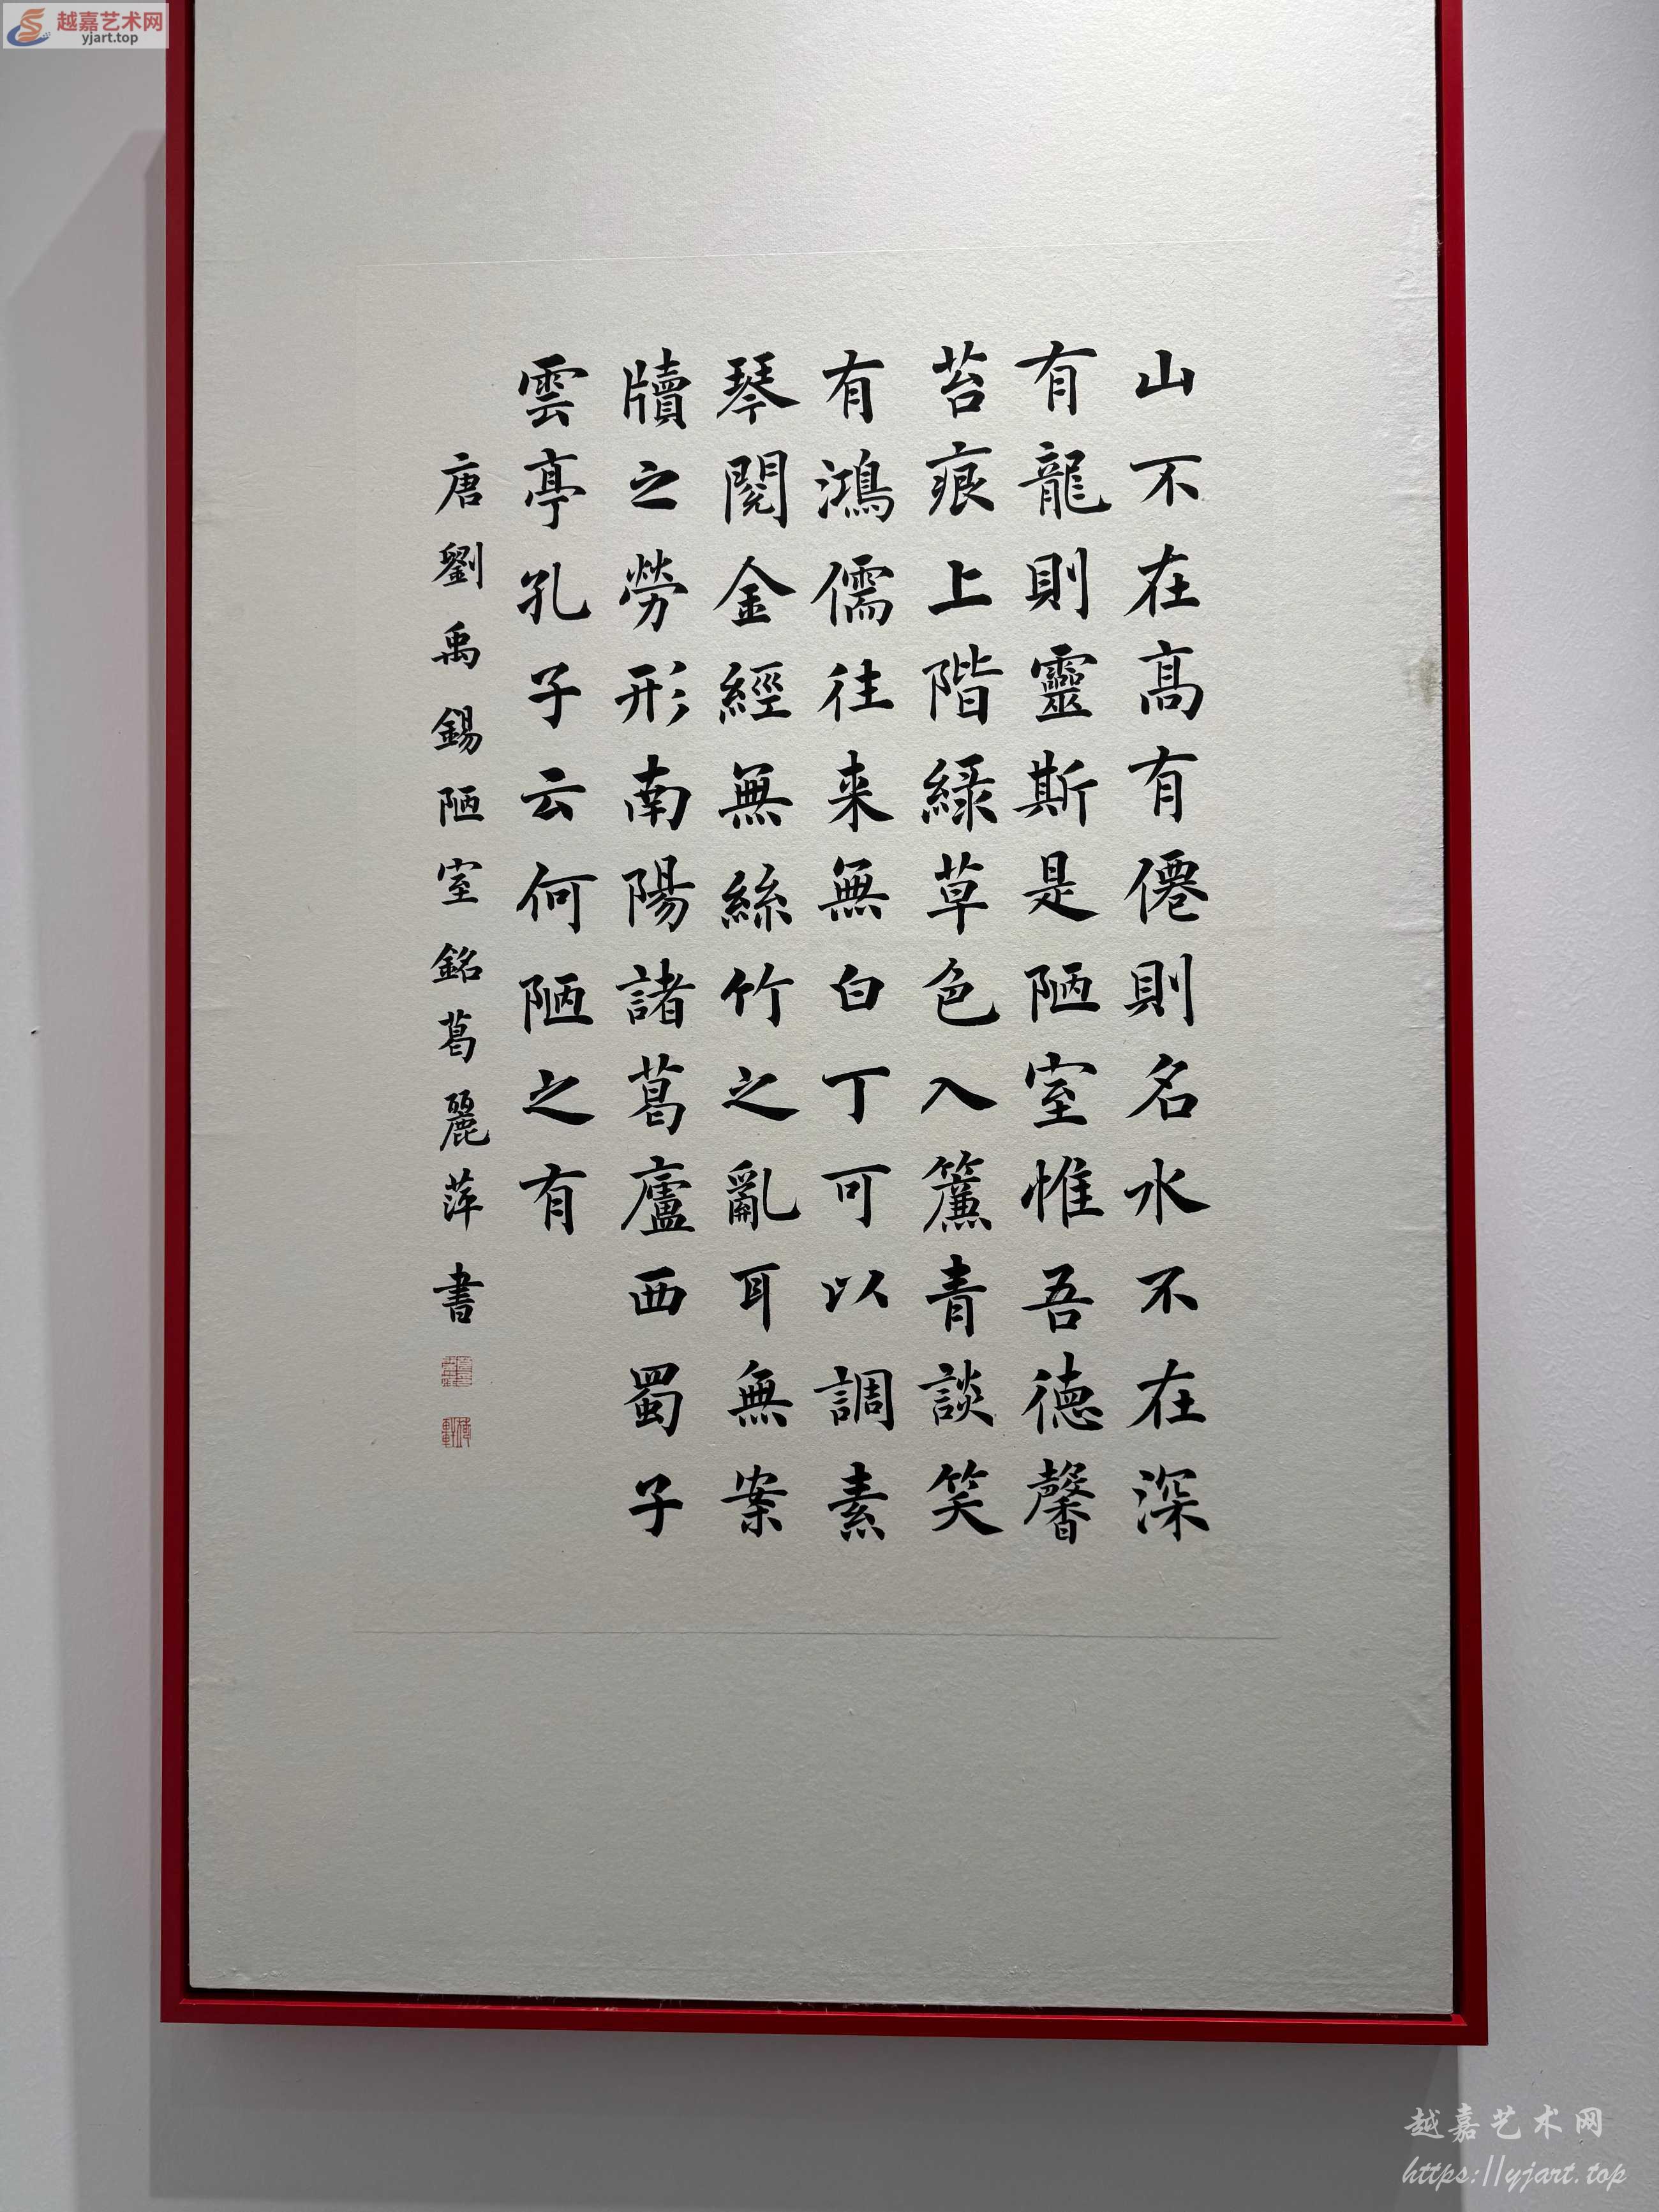 越嘉艺术网
yjart.top
山不在高有僊則名水不在深
有龍則靈斯是陋室惟吾德馨
苔痕上階綠草色入簾青談笑
有鴻儒往来無白丁可以調素
琴閱金經無絲竹之亂耳無案
牘之勞形南陽諸葛廬西蜀子
雲亭孔子云何陋之有
唐劉禹錫陋室銘葛麗萍書
越嘉艺术网
https://yjart.top